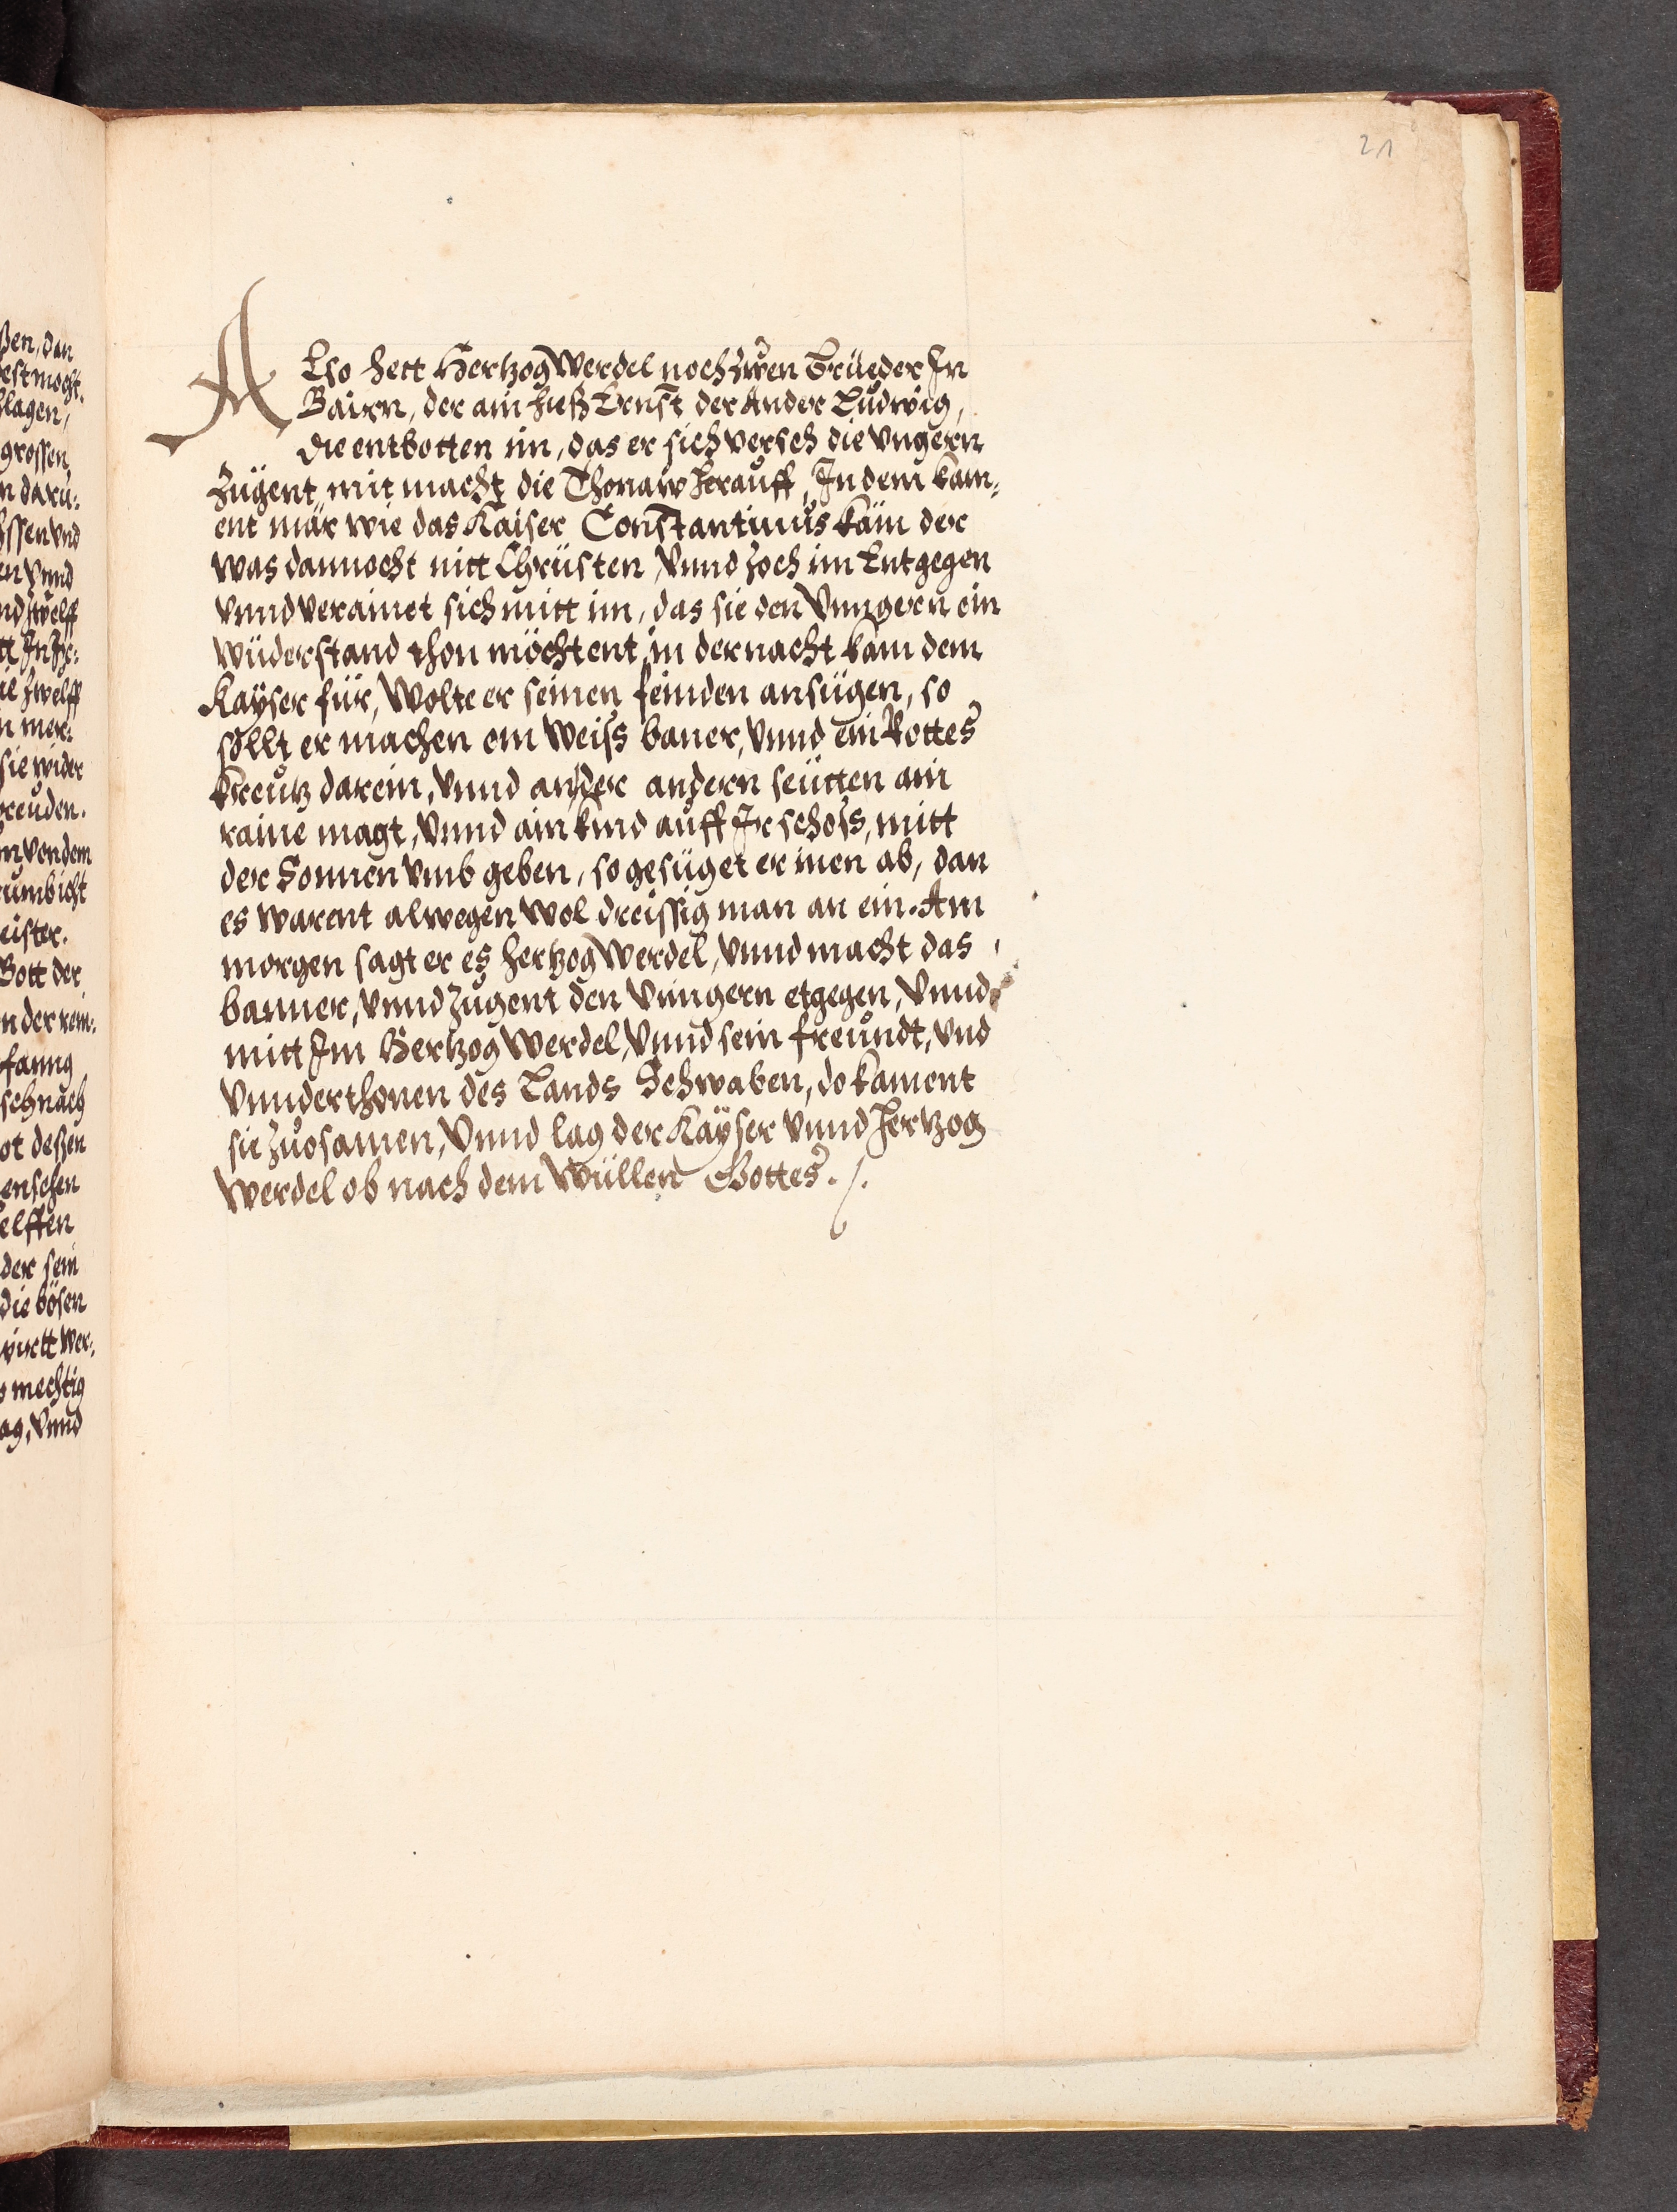 21
ALso hett Hertzog Werdel noch zwen Brüeder In
Bairn, der ain hieß Ernst der Ander Ludwig,
die entbotten im, das er sich verseh die Vngern
zügent mit macht die Thonaw herauff, In dem kam:
ent mär wie das Kaiser Constantinus käm der
was dannocht nitt Christen, Vnnd zoch im Entgegen
Vnnd verainet sich mitt im, das sie den Vnngern ein
wüderstand thon möchtent, in der nacht kam dem
Kayser für, Wolte er seinen feinden ansügen, so
söllt er machen ein Weiss baner, Vnnd ein Rottes
kreutz darein, Vnnd an der andern seütten ain
raine magt, Vnnd ain kind auff Ir schoss, mitt
der Sonnen Vmb geben, so gesüget er inen ab, dan
es warent alwegen Wol dreissig man an ein. Am
morgen sagt er es hertzog Werdel, Vnnd macht das
banner, Vnnd zugent den Vnngern etgegen, Vnnd
mitt Im Hertzog Werdel, Vnnd sein freundt, Vnd
Vnnderthonen des Lands Schwaben, do kament
sie zuosamen, Vnnd lag der Kayser Vnnd Hertzog
Werdel ob nach dem Wüllen Gottes. /.
ßen, dan
est mocht.
hlagen,
grossen
n daru:
ssen vnd
en Vnnd
nd zwelff
tt In Ir:
al zwelff
n mer:
sie wider
reuden.
n von dem
rumb icht
eister.
Gott der
n der rein:
fanng
sch nach
ot deßen
enschen
elffen
der sein
die bösen
württ wer:
s mechtig
ag, Vnnd